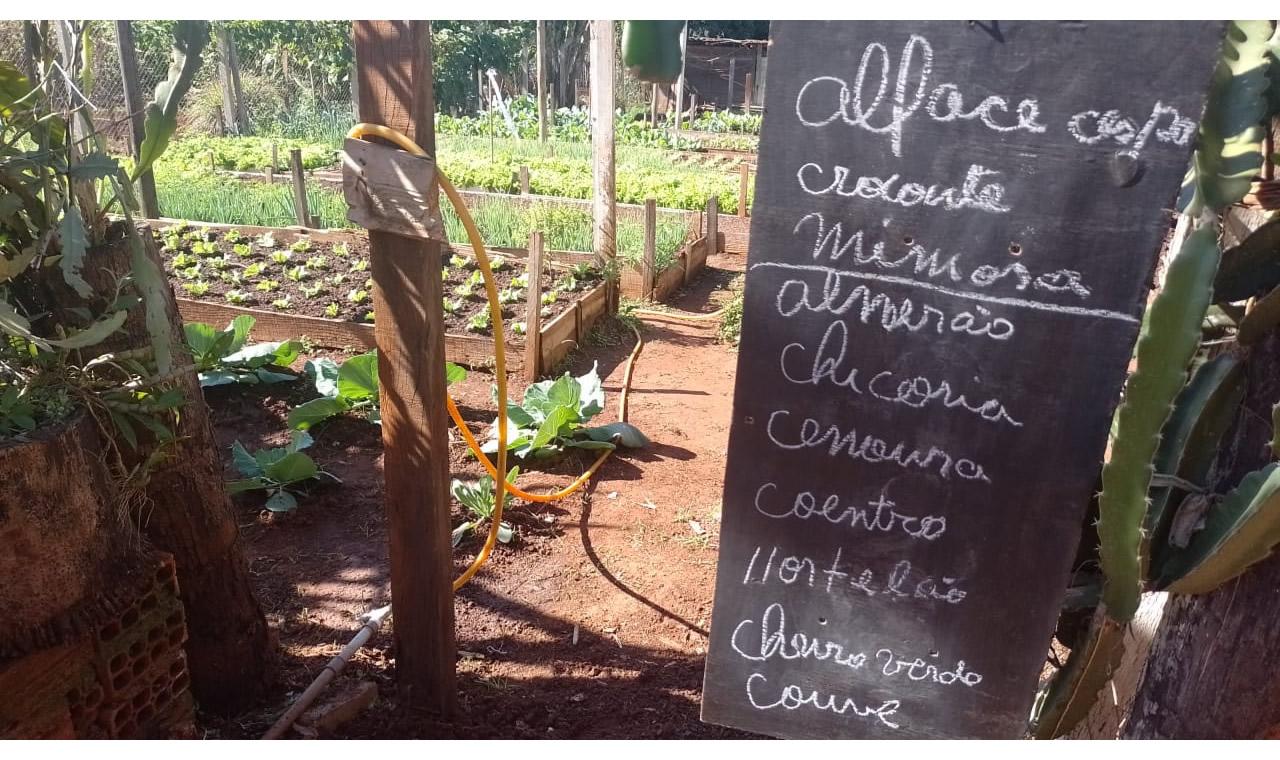 alface crespa
crocante
Mimosa
almerão
chicoria
cenoura
coentro
Hortelão
cheiro verde
couve